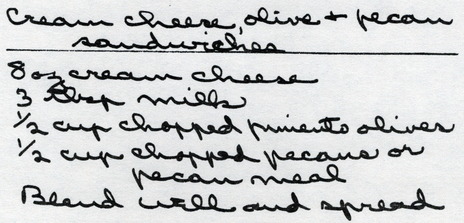 Cream cheese, olive + pecan
sandwiches
8 oz cream cheese
3 tbsp milk
1/2 cup chopped pimento olives
1/2 cup chopped pecans or
pecan meal
Blend well and spread